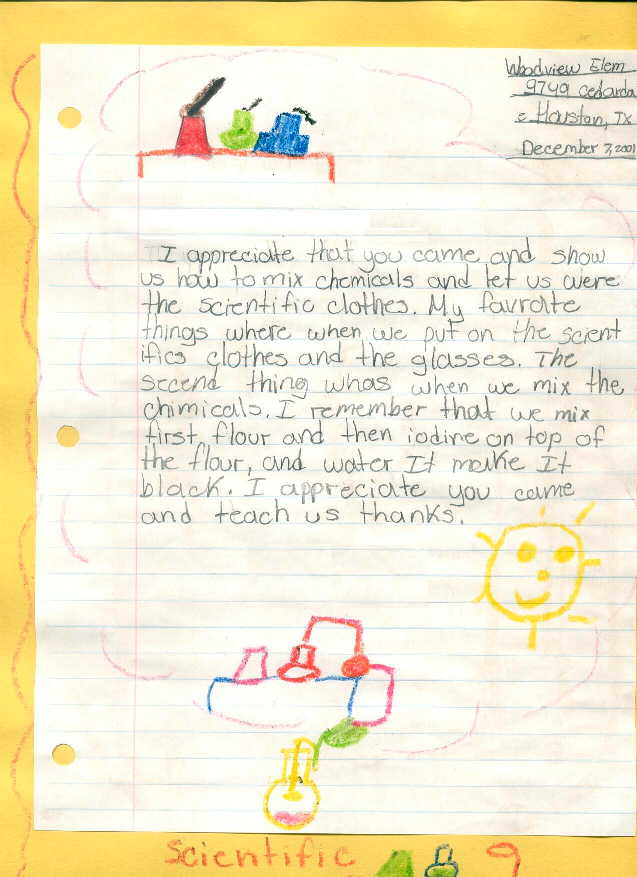 Woodview Elem
9749 Cedarda
e Houston, Tx
December 7, 2001
I appreciate that you came and show
us how to mix chemicals and let us were
the scientific clothes. My favroite
things where when we put on the scient
ifics clothes and the glasses. The
secend thing whas when we mix the
chimicals. I remember that we mix
first flour and then iodine on top of
the flour, and water It make It
black. I appreciate you came
and teach us thanks.
Scientific